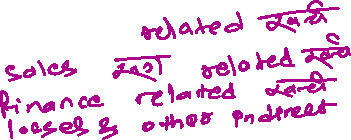 related खर्चे
Sales खर्चा related खर्चे
finance related खर्चे
losses & other indirect